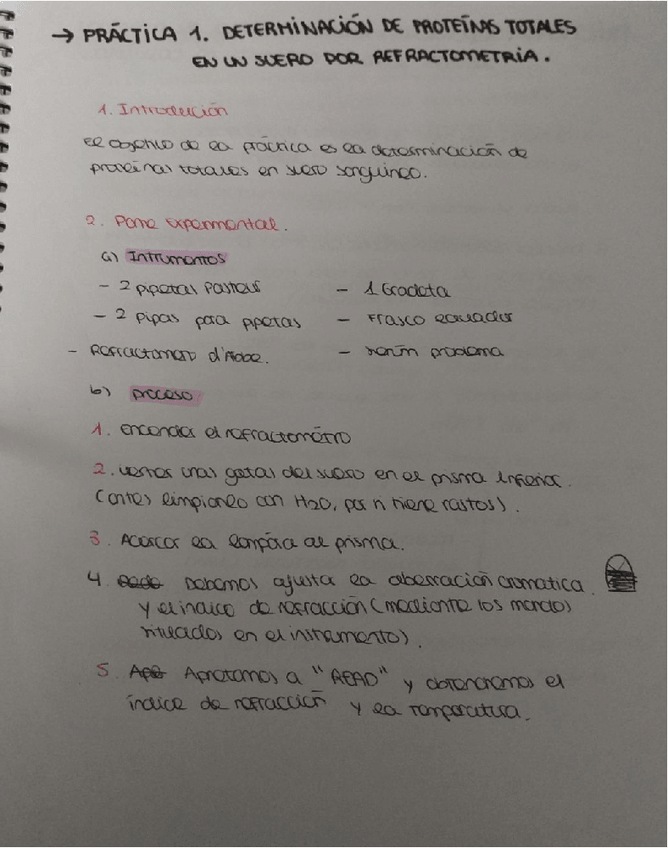 → PRÁCTICA 1. DETERMINACIÓN DE PROTEÍNAS TOTALES
EN UN SUERO POR REFRACTOMETRIA.
1. Introducción
El objetivo de la práctica es la determinación de
proteínas totales en suero sanguineo.
2. Parte experimental.
a) Intrumentos
- 2 pipetas Pasteur - 1 Gradeta
- 2 pipas para ppetas - Frasco
- Refractometro d'Abbe. - serúm problema
b) proceso
1. encender el refractométro
2. verter unas gotas del suero en el prisma inferior.
(antes limpiarlo con H2O, por si tiene rastos).
3. Acercar la lampára al prisma.
4. Debemos ajusta la aberración cromatica
y el indice de refracción (mediante los mandos
situados en el instrumento).
5. Apretamos a "READ" y obtendremos el
índice de refracción y la temperatura.